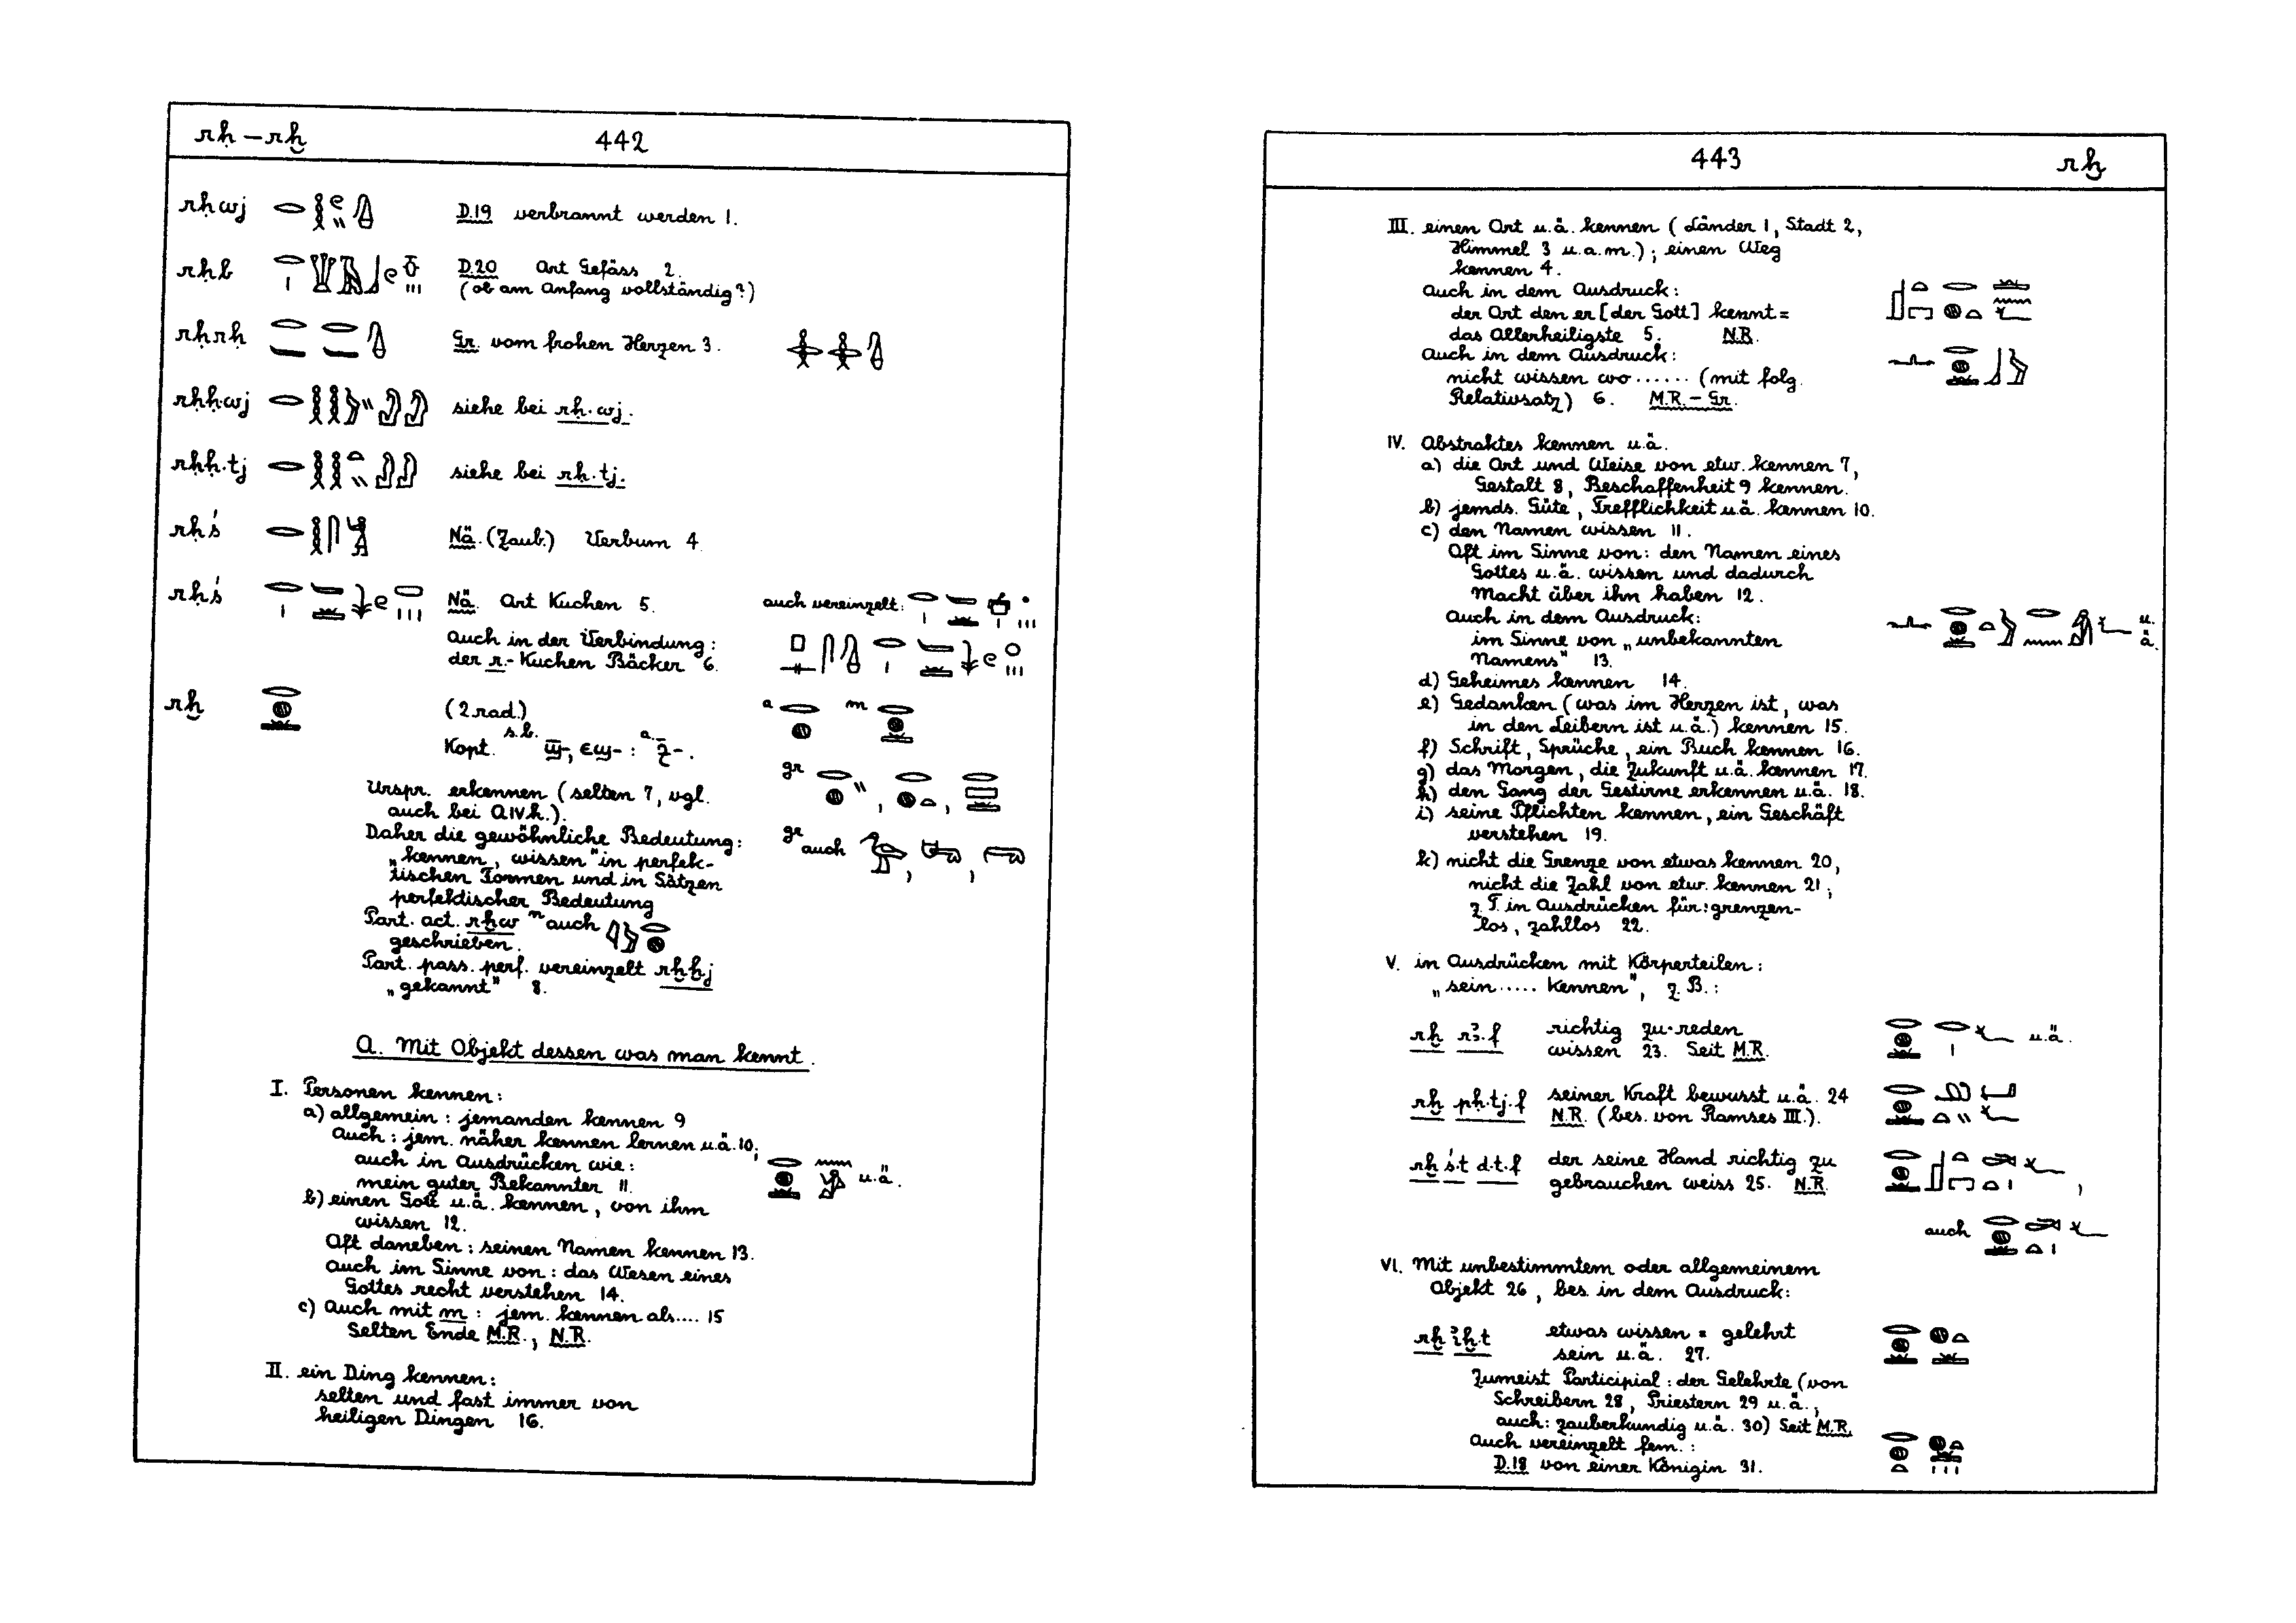 rḥ – rḫ 442
rḥwj D.19 verbrannt werden 1.
rḥb D.20 Art Gefäss 2.
(ob am Anfang vollständig?)
rḥrḥ Gr. vom frohen Herzen 3.
rḥḥ.wj siehe bei rḥ.wj.
rḥḥ.tj siehe bei rḥ.tj.
rḥś Nä. (Zaub.) Verbum 4.
rḥś Nä. Art Kuchen 5. auch vereinzelt:
Auch in der Verbindung:
der r.-Kuchen Bäcker 6.
rḫ (2 rad.) a m
Kopt. s.b. ϣ-, ⲉϣ- : a. ϩ̄-.
gr
Urspr. erkennen (selten 7, vgl.
auch bei A IV h.).
Daher die gewöhnliche Bedeutung: gr auch
„kennen, wissen" in perfek-
tischen Formen und in Sätzen
perfektischer Bedeutung
Part. act. rḫw n auch
geschrieben.
Part. pass. perf. vereinzelt rḫḫj
„gekannt" 8.
A. Mit Objekt dessen was man kennt.
I. Personen kennen:
a) allgemein: jemanden kennen 9
Auch: jem. näher kennen lernen u.ä. 10;
auch in Ausdrücken wie:
mein guter Bekannter 11. u.ä.
b) einen Gott u.ä. kennen, von ihm
wissen 12.
Oft daneben: seinen Namen kennen 13.
auch im Sinne von: das Wesen eines
Gottes recht verstehen 14.
c) Auch mit m : jem. kennen als.... 15
Selten Ende M.R., N.R.
II. ein Ding kennen:
selten und fast immer von
heiligen Dingen 16.
443 rḫ
III. einen Ort u.ä. kennen (Länder 1, Stadt 2,
Himmel 3 u.a.m.); einen Weg
kennen 4.
Auch in dem Ausdruck:
der Ort den er [der Gott] kennt =
das Allerheiligste 5. N.R.
Auch in dem Ausdruck:
nicht wissen wo ...... (mit folg.
Relativsatz) 6. M.R. – Gr.
IV. Abstraktes kennen u.ä.
a) die Art und Weise von etw. kennen 7,
Gestalt 8, Beschaffenheit 9 kennen.
b) jemds. Güte, Trefflichkeit u.ä. kennen 10.
c) den Namen wissen 11.
Oft im Sinne von: den Namen eines
Gottes u.ä. wissen und dadurch
Macht über ihn haben 12.
Auch in dem Ausdruck: u.
im Sinne von „unbekannten ä.
Namens" 13.
d) Geheimes kennen 14.
e) Gedanken (was im Herzen ist, was
in den Leibern ist u.ä.) kennen 15.
f) Schrift, Sprüche, ein Buch kennen 16.
g) das Morgen, die Zukunft u.ä. kennen 17.
h) den Gang der Gestirne erkennen u.ä. 18.
i) seine Pflichten kennen, ein Geschäft
verstehen 19.
k) nicht die Grenze von etwas kennen 20,
nicht die Zahl von etw. kennen 21;
z.T. in Ausdrücken für: grenzen-
los, zahllos 22.
V. in Ausdrücken mit Körperteilen:
„sein ..... kennen", z.B.:
rḫ rꜣ.f richtig zu reden u.ä.
wissen 23. Seit M.R.
rḫ pḥ.tj.f seiner Kraft bewusst u.ä. 24
N.R. (bes. von Ramses III.).
rḫ ś.t d.t.f der seine Hand richtig zu
gebrauchen weiss 25. N.R. ,
auch
VI. Mit unbestimmtem oder allgemeinem
Objekt 26, bes. in dem Ausdruck:
rḫ iḫ.t etwas wissen = gelehrt
sein u.ä. 27.
Zumeist Participial: der Gelehrte (von
Schreibern 28, Priestern 29 u.ä.;
auch: zauberkundig u.ä. 30) Seit M.R.
Auch vereinzelt fem.:
D.18 von einer Königin 31.